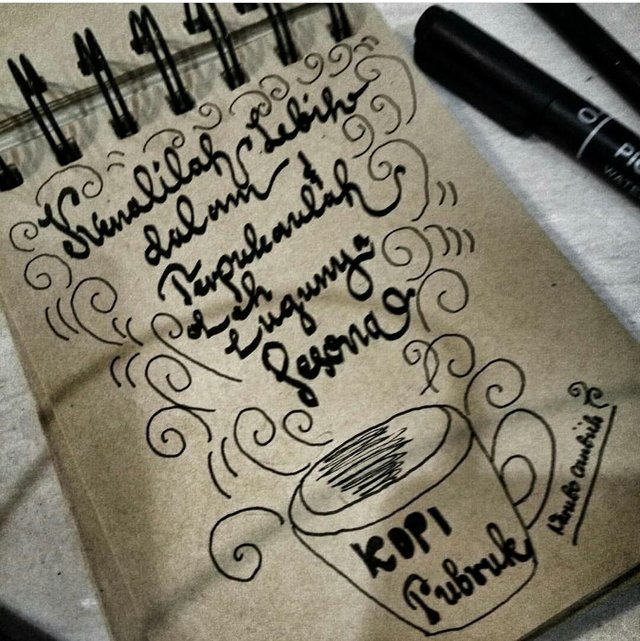 Kenalilah Lebih
dalam &
Terpukaulah
oleh
Lugunya
Pesona
KOPI
Tubruk